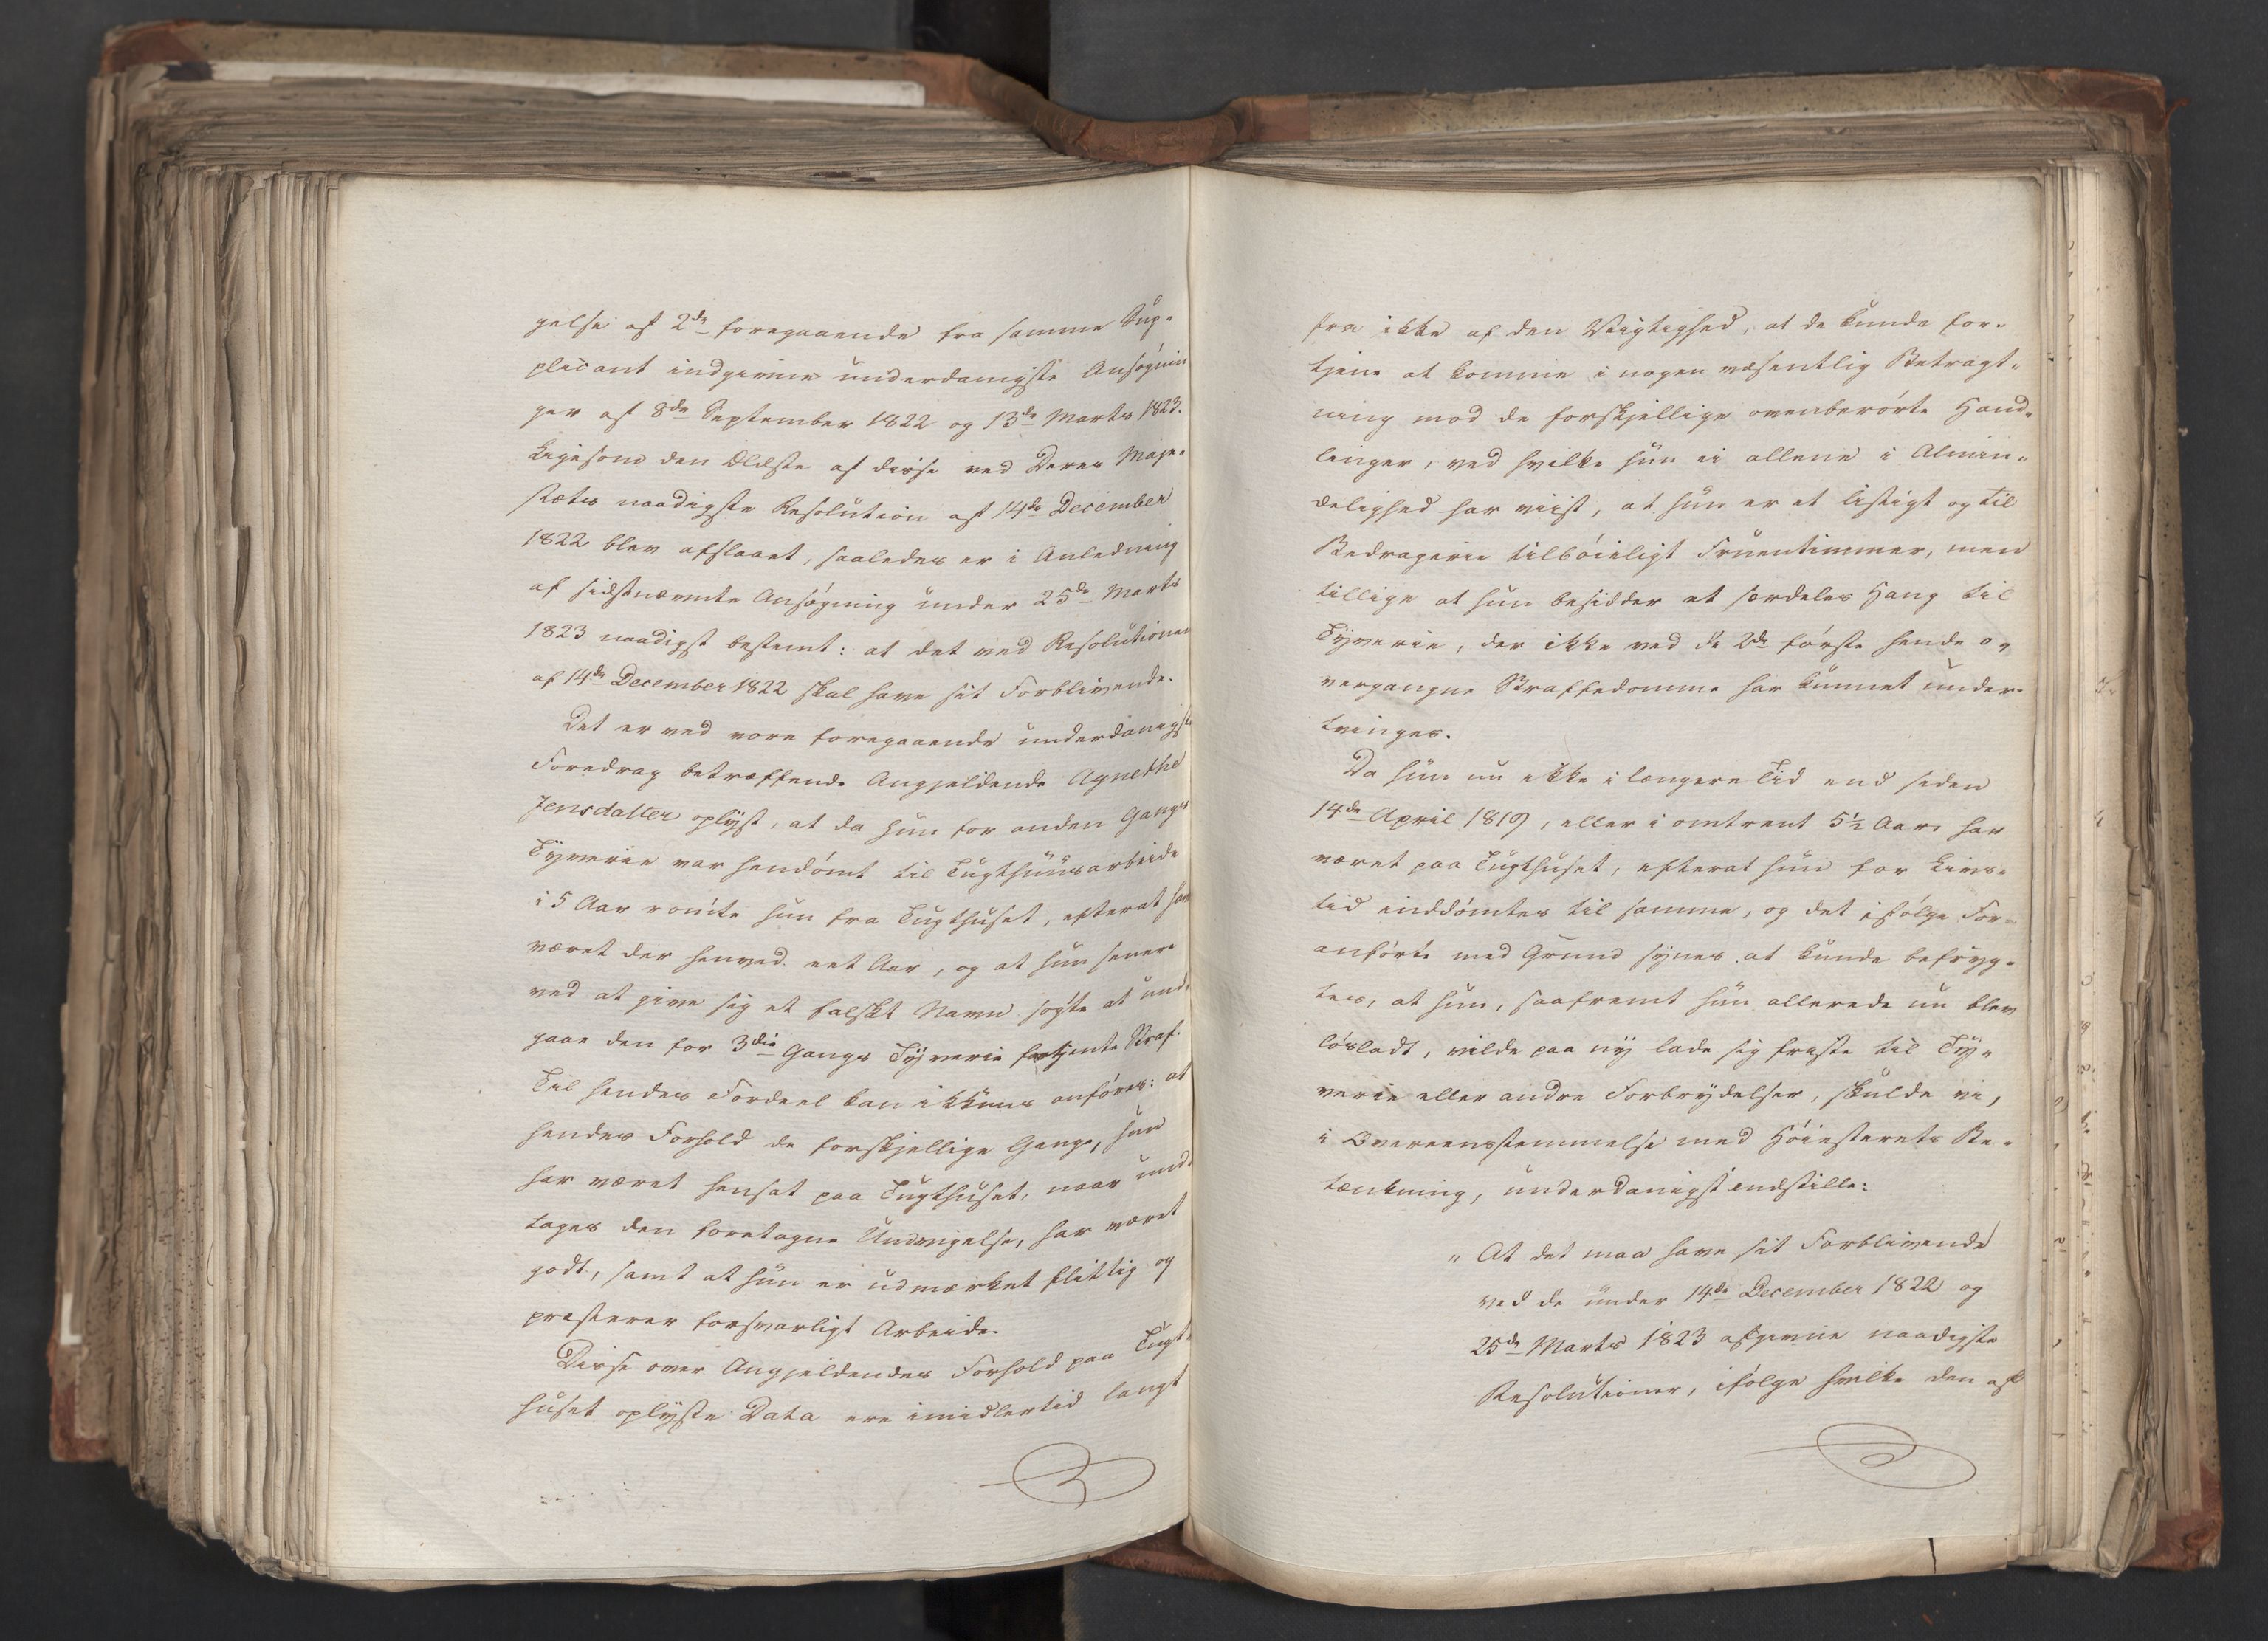 gelse af 2de foregaaende fra samme Sup-
plicant indgivne underdanigste Ansøgnin
ger af 8de September 1822 og 13de Marts 1823.
Ligesom den Ældste af disse ved Deres Maje-
stæts naadigste Resolution af 14de December
1822 blev afslaaet, saaledes er i Anledning
af sidstnævnte Ansøgning under 25de Marts
1823 naadigst bestemt: at det ved Resolutionen
af 14de December 1822 skal have sit Forblivende.
Det er ved vore foregaaende underdanigste
Foredrag betræffende Angjeldende Agnethe
Jensdatter oplyst, at da hun for anden Gang
Tyverie var hendømt til Tugthuusarbeide
i 5 Aar rømte hun fra Tugthuset, efterat have
været der henved eet Aar, og at hun senere
ved at give sig et falskt Navn søgte at und-
gaae den for 3die Gangs Tyverie fortjente Straf.
Til hendes Fordeel kan ikkuns anføres: at
hendes Forhold de forskjellige Gange, hun
har været hensat paa Tugthuset, naar und-
tages den foretagne Undvigelse, har været
godt, samt at hun er udmærket flittig og
præsterer forsvarligt Arbeide.
Disse over Angjeldendes Forhold paa Tugt-
huset oplyste Data ere imidlertid langt
fra ikke af den Vigtighed, at de kunde for-
tjene at komme i nogen væsentlig Betragt-
ning mod de forskjellige ovenberørte Hand-
linger, ved hvilke hun ei allene i Almin-
delighed har viist, at hun er et listigt og til
Bedragerie tilbøieligt Fruentimmer, men
tillige at hun besidder et særdeles Hang til
Tyverie, der ikke ved de 2de første hende o
vergangne Straffedomme har kunnet under-
tvinges.
Da hun nu ikke i længere Tid end siden
14de April 1819, eller i omtrent 5½ Aar, har
været paa Tugthuset, efterat hun for Livs-
tid inddømtes til samme, og det ifølge For-
anførte med Grund synes at kunde befryg-
tes, at hun, saafremt hun allerede nu blev
løsladt, vilde paa ny lade sig friste til Ty-
verie eller andre Forbrydelser, skulde vi,
i Overeensstemmelse med Høiesterets Be-
tænkning, underdanigst indstille:
" At det maa have sit Forblivende
ved de under 14de December 1822 og
25de Marts 1823 afgivne naadigste
Resolutioner, ifølge hvilke den af